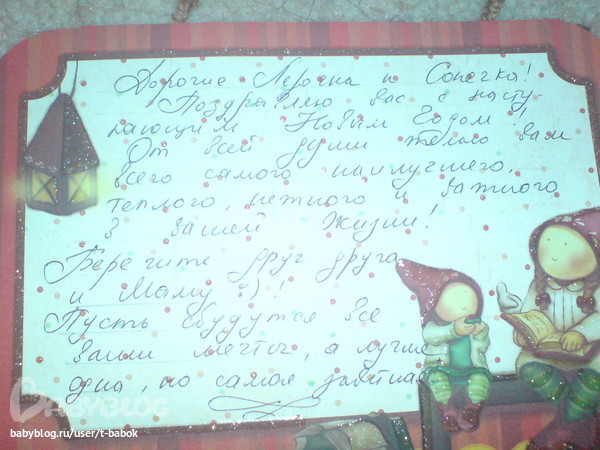 Дорогие Лерочка и Сонечка!
Поздравляю вас с насту-
пающим Новым Годом!
От всей души желаю вам
всего самого наилучшего,
теплого, нежного и важного
в вашей жизни!
Берегите друг друга
и маму :)!
Пусть сбудутся все
ваши мечты, а лучше
одна, но самая заветная
BABYBLOG
babyblog.ru/user/t-babok